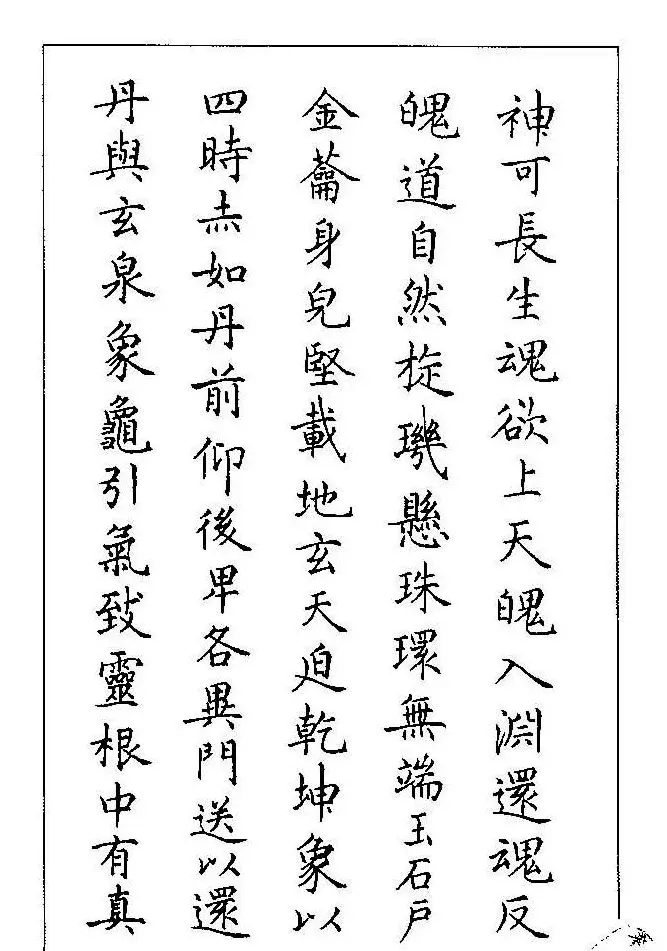 神可長生魂欲上天魄入淵還魂反
魄道自然㨁璣懸珠環無端玉石戶
金籥身皃堅載地玄天迫乾坤象以
四時赤如丹前仰後卑各異門送以還
丹與玄泉象龜引氣致靈根中有真